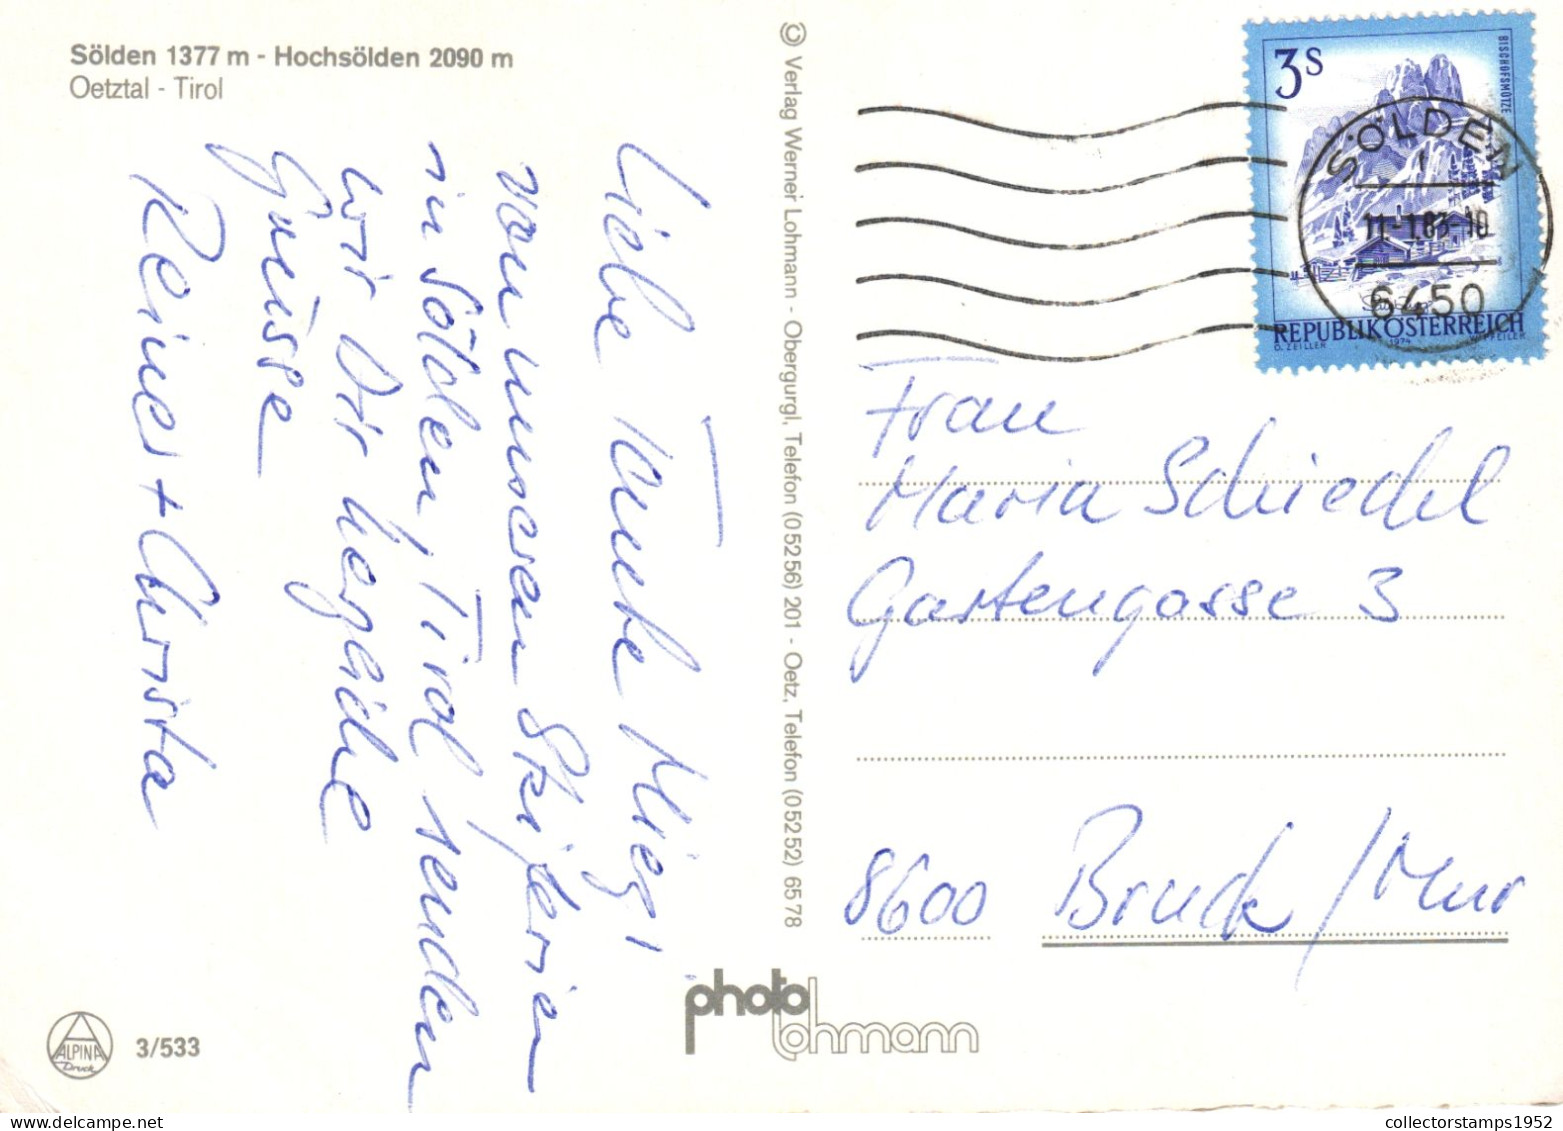 Sölden 1377 m - Hochsölden 2090 m
Oetztal - Tirol
Liebe Tante Mizzi,
von unseren Skiferien
in Sölden, Tirol senden
wir Dir herzliche
Grüsse
Reiner + Christa
© Verlag Werner Lohmann - Obergurgl, Telefon (05256) 201 - Oetz, Telefon (05252) 6578
3 S
BISCHOFSMÜTZE
REPUBLIK ÖSTERREICH
O. ZEILLER 1974 PFEILER
SÖLDEN
11-1.83-10
6450
Frau
Maria Schiedel
Gartengasse 3
8600 Bruck/Mur
photo
lohmann
ALPINA
Druck
3/533
collectorstamps1952